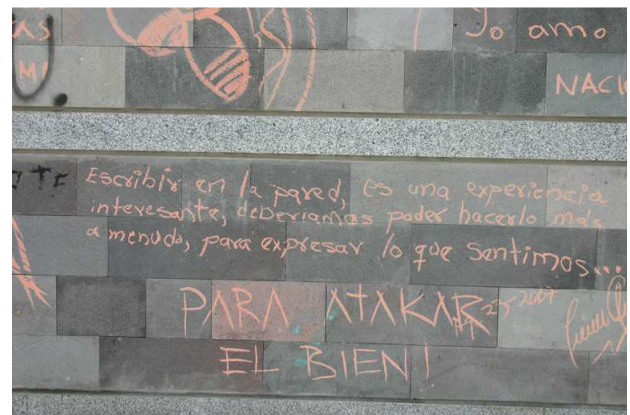 AS
Yo amo
M
NACI
TE
Escribir en la pared, es una experiencia
interesante, deberiamas poder hacerlo más
a menudo, para expresar lo que sentimos...
PARA ATAKAR
EL BIEN!